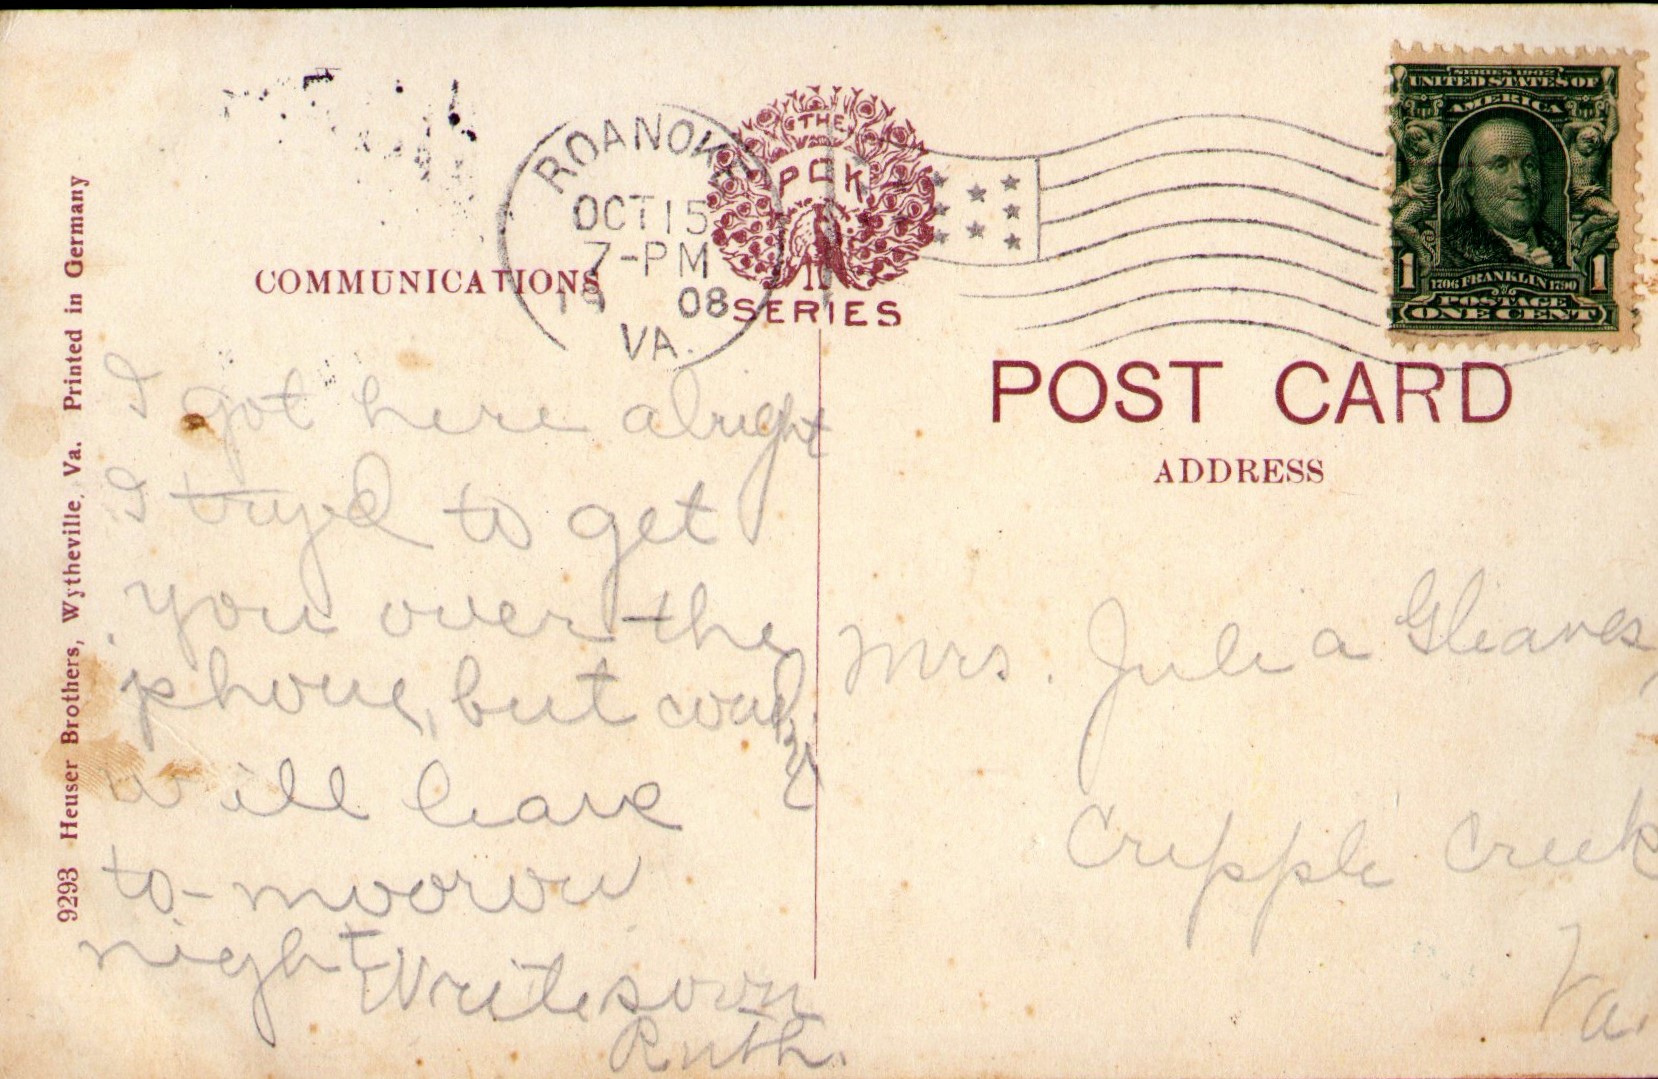 ROANOKE
OCT 15
7-PM
08
VA.
THE
PCK
SERIES
SERIES 1902
UNITED STATES OF
AMERICA
1 1706 FRANKLIN 1790 1
POSTAGE
ONE CENT
COMMUNICATIONS
POST CARD
ADDRESS
9293 Heuser Brothers, Wytheville, Va. Printed in Germany
I got here alright
I tryed to get
you over the
phone, but
will leave
to-moorow
night Write soon
Ruth.
Mrs. Julia Gleaves,
Cripple Creek
Va.